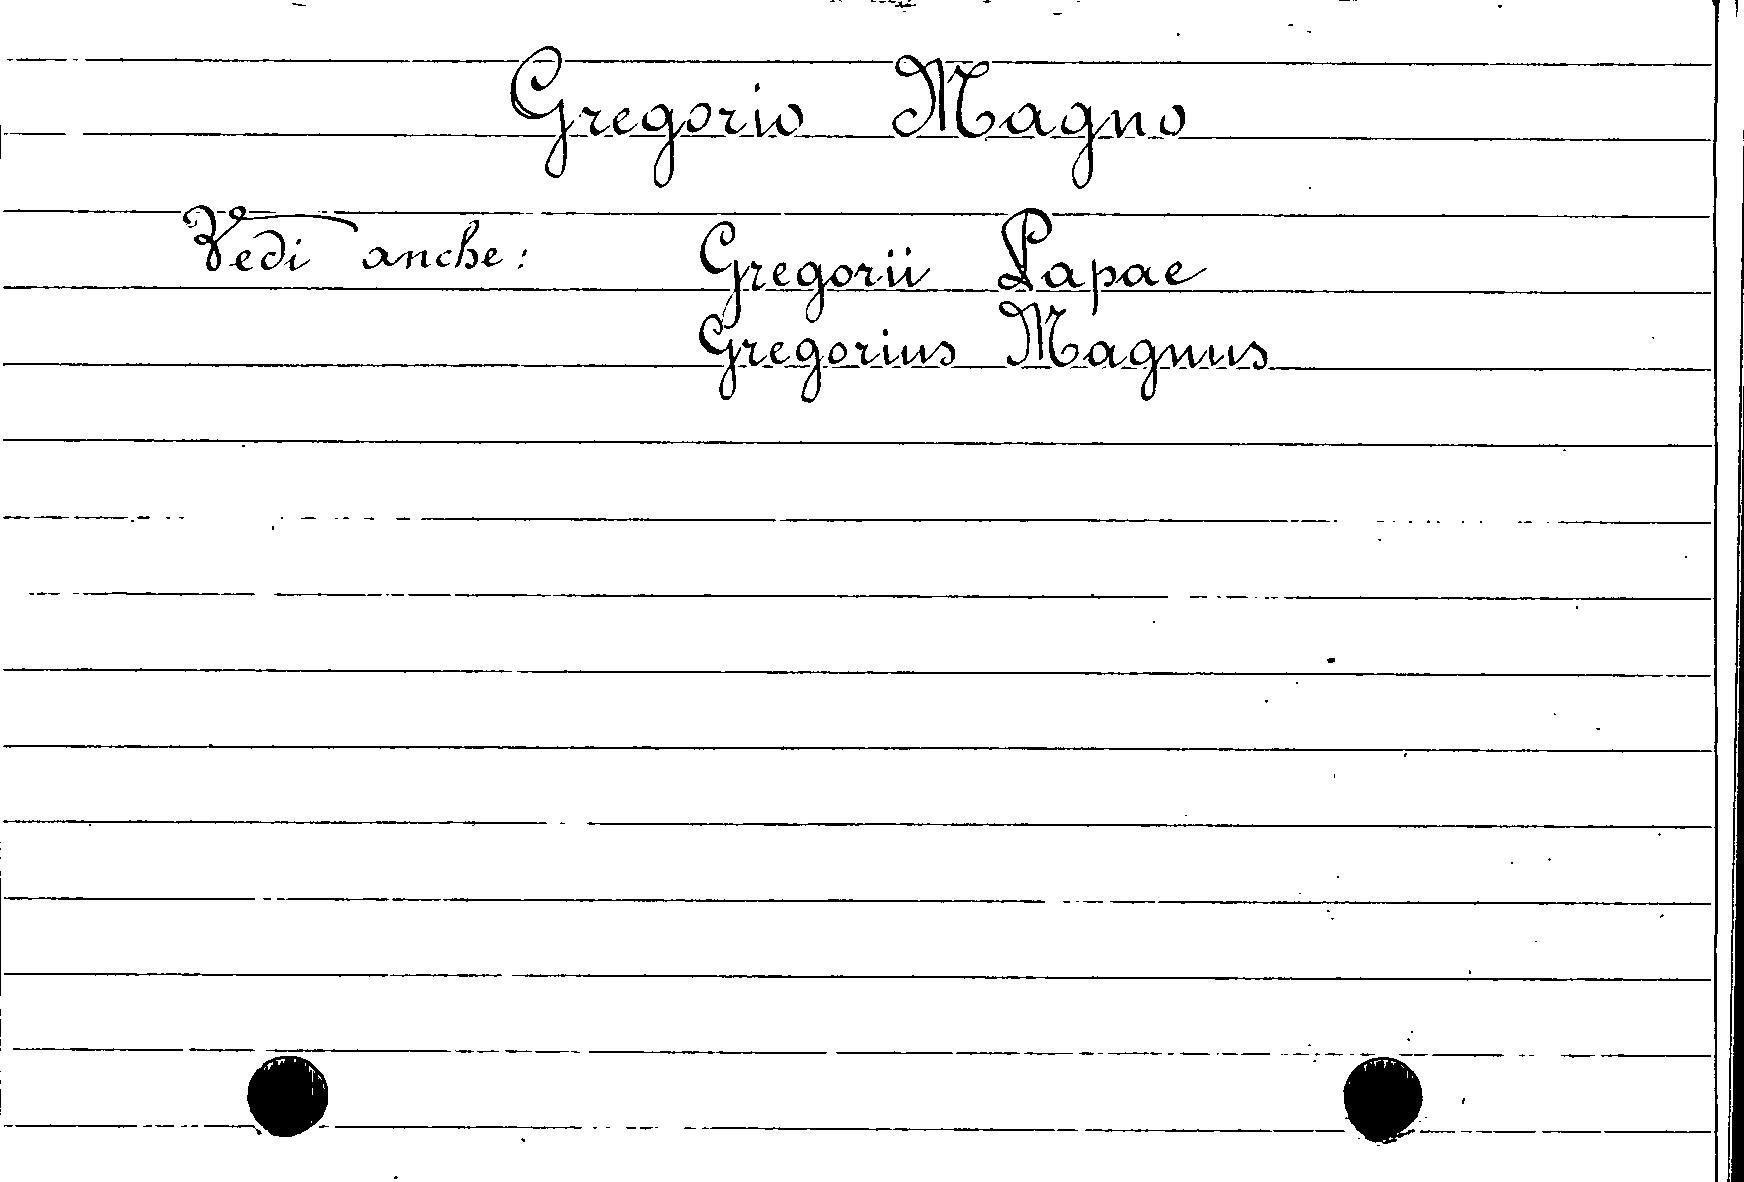 Gregorio Magno
Vedi anche: Gregorii Papae
Gregorius Magnus